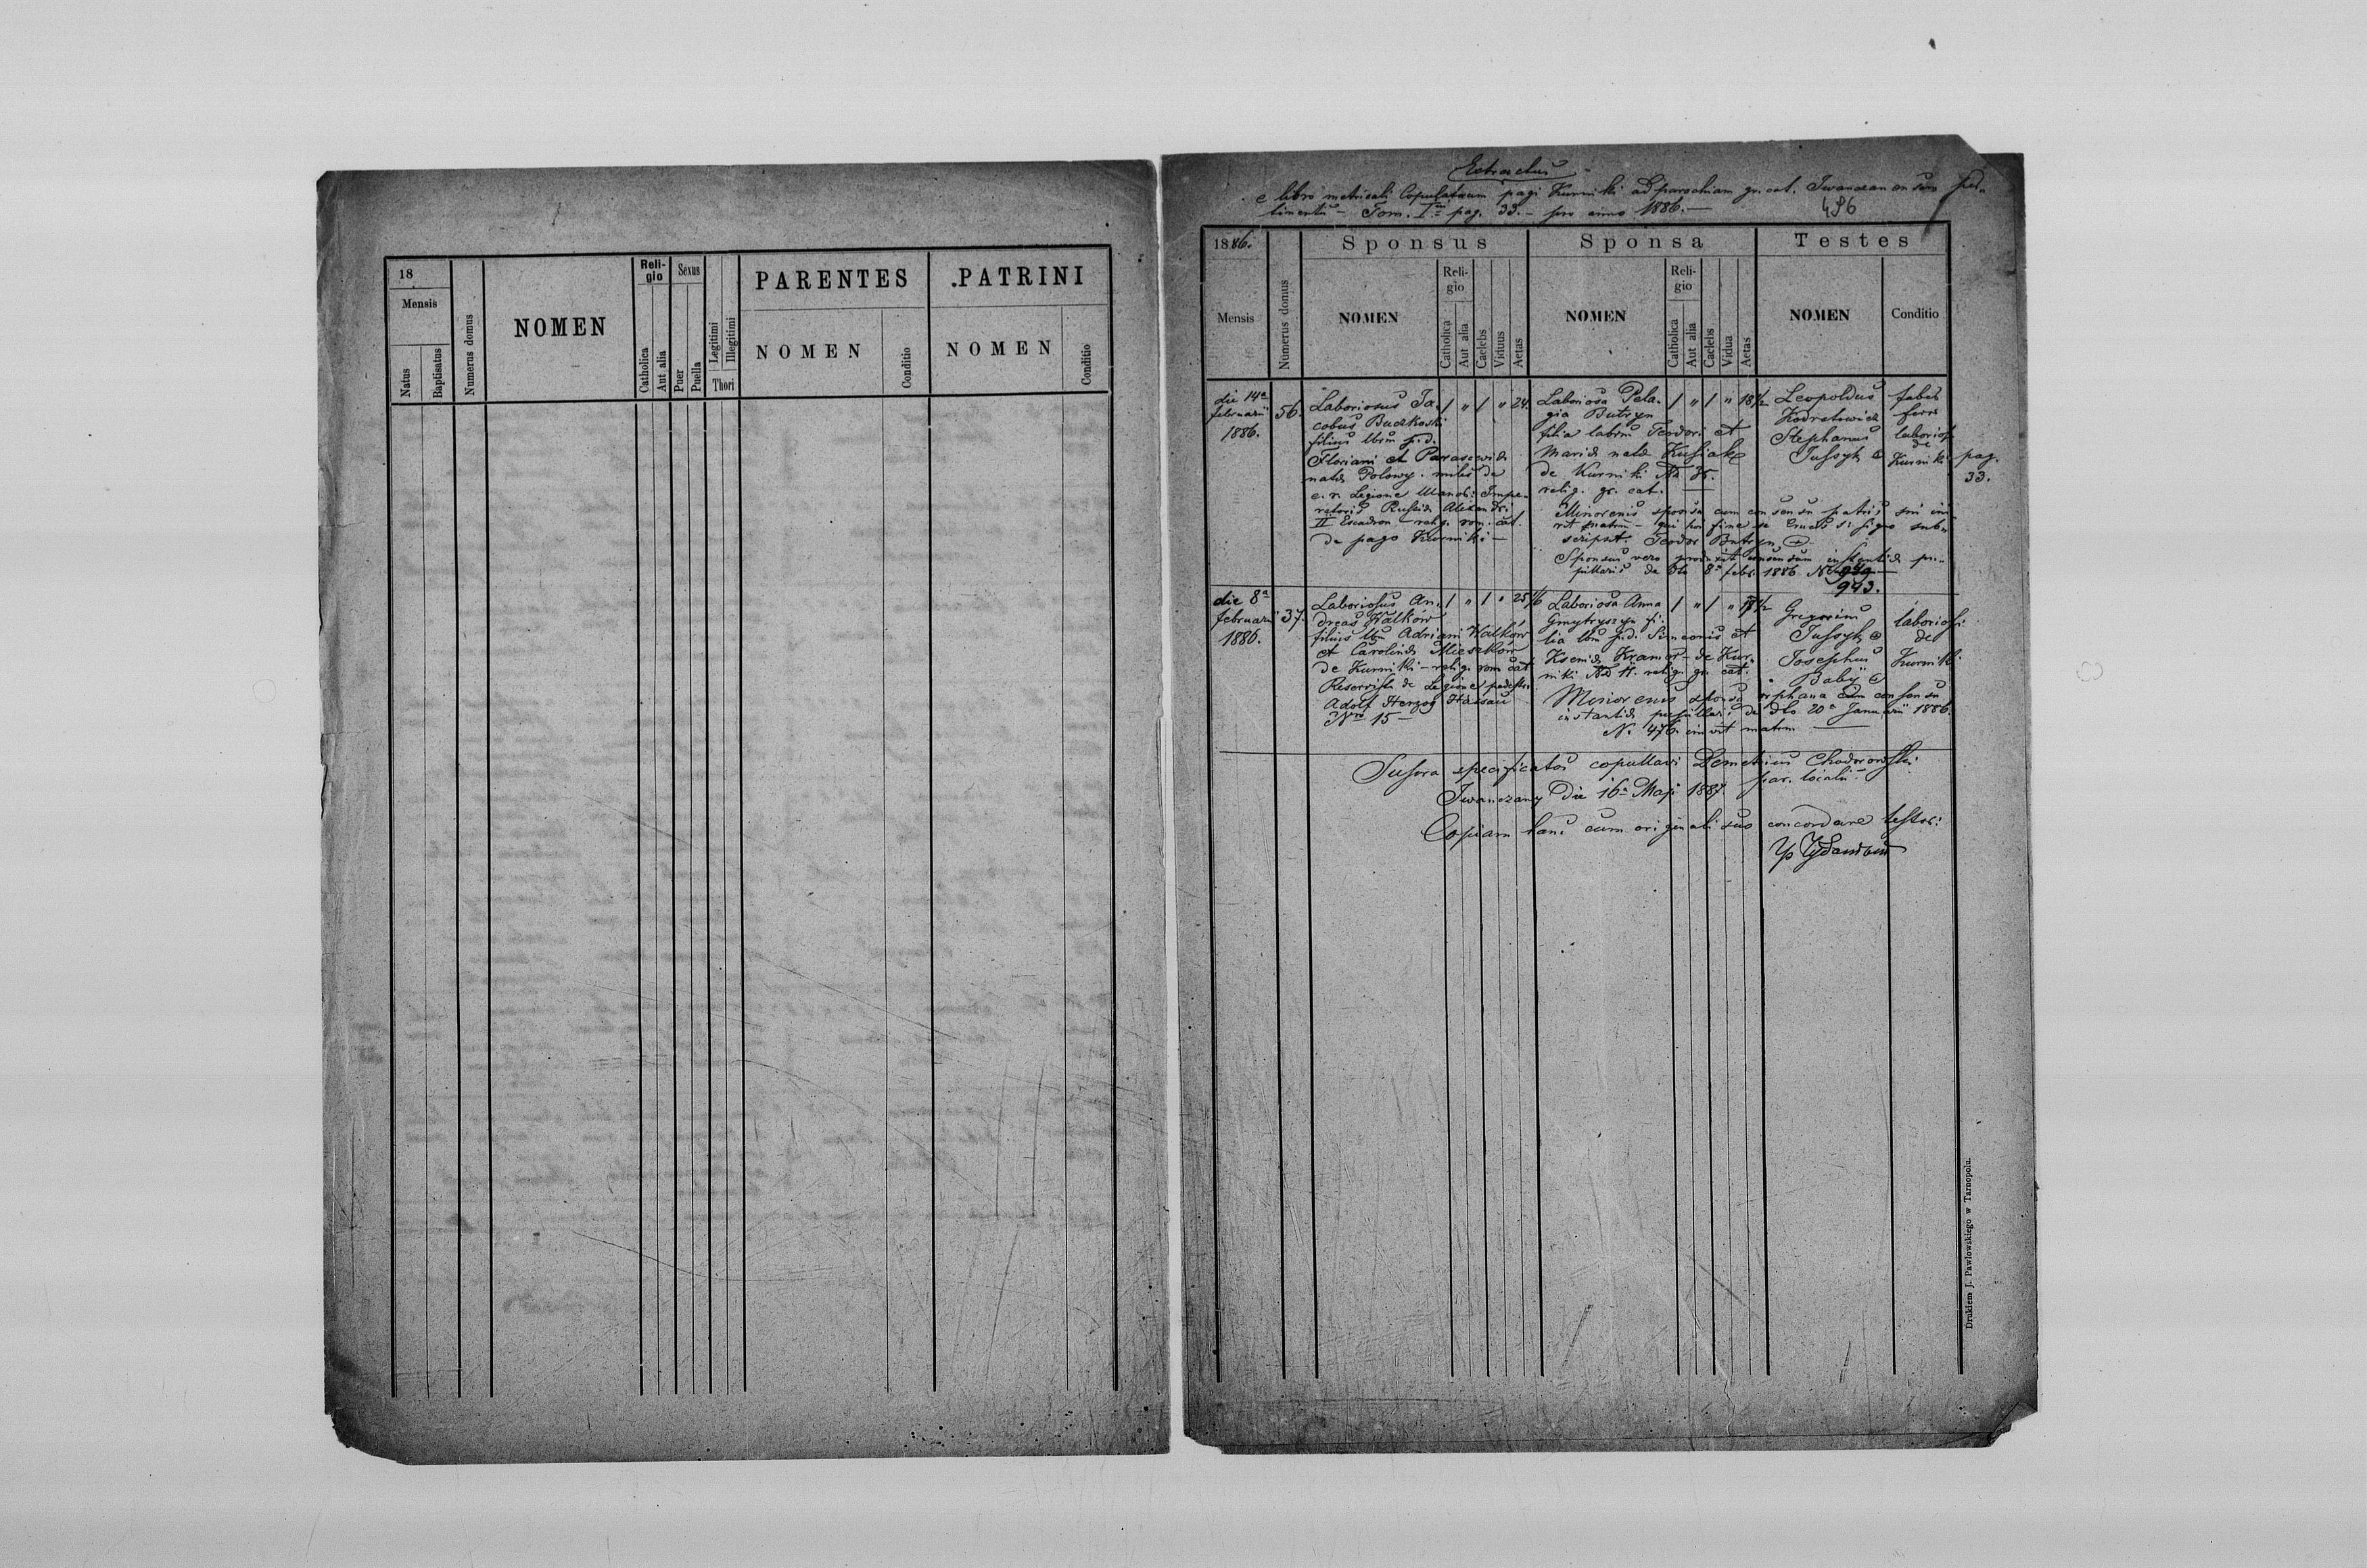 18
Mensis
Natus
Baptisatus
Numerus domus
NOMEN
Reli-
gio
Catholica
Aut alia
Sexus
Puer
Puella
Legitimi
Illegitimi
Thori
PARENTES
NOMEN
Conditio
.PATRINI
NOMEN
Conditio
Extractus
e libro metricali Copulatorum pagi Kurniki ad parochiam gr. cat. Iwanczan
pag. 33. pro anno 1886.
496
1886.
Mensis
Numerus domus
Sponsus
NOMEN
Reli-
gio
Catholica
Aut alia
Caelebs
Viduus
Aetas
Sponsa
NOMEN
Reli-
gio
Catholica
Aut alia
Caelebs
Vidua
Aetas
Testes
NOMEN
Conditio
die 14a
februarii
1886.
56.
Laboriosus Ja-
cobus Buczkoski
filius
Floriani et Parascevidis
natae Polowy. miles de
c. r. Legione Ulanor. Impe-
ratoris Russiae Alexandri
II Escadron relig. rom. cat.
de pago Kurniki —
/ " / " 24.
Laboriosa Pela-
gia Butryn
filia labor. Teodori et
Mariae natae Kusiak
de Kurniki
relig. gr. cat. —
/ " / " 18 1/2
Leopoldus
Stephanus
Jussyk
fabr
ferr
laborios.
de
Kurniki
pag.
33.
Minorenis sponsa cum consensu patris sui ini-
vit matrim — qui in fine se Crucis signo sub-
scripsit. Teodor Butryn +
Sponsus vero instantiae pu-
pillaris de dto 8a febr. 1886 No
943.
die 8a
februarii
1886.
37.
Laboriosus An-
dreas Walków
filius Adriani Walków
et Carolinae Mieszków
de Kurniki — relig. rom cat
Reservista de Legione pedestri
Adolf Herzog
Nro 15 —
/ " / " 25
Laboriosa Anna
Gmytryszyn fi-
lia Simeonis et
Kseniae Kramar — de Kur-
niki relig. gr. cat.
/ " /
Gregorius
Jussyk
Josephus
Babij
laboriosi
de
Kurniki
Minorenis sponsa orphana cum consensu
instantiae pupillaris de dto 20a Januarii 1886.
No 476. inivit matrim —
Supra specificatos copulavi Demetrius Chodorowski
par. localis
Iwanczany die 16a Maji 1887
Copiam hanc cum originali suo concordare testor:
Drukiem J. Pawłowskiego w Tarnopolu.